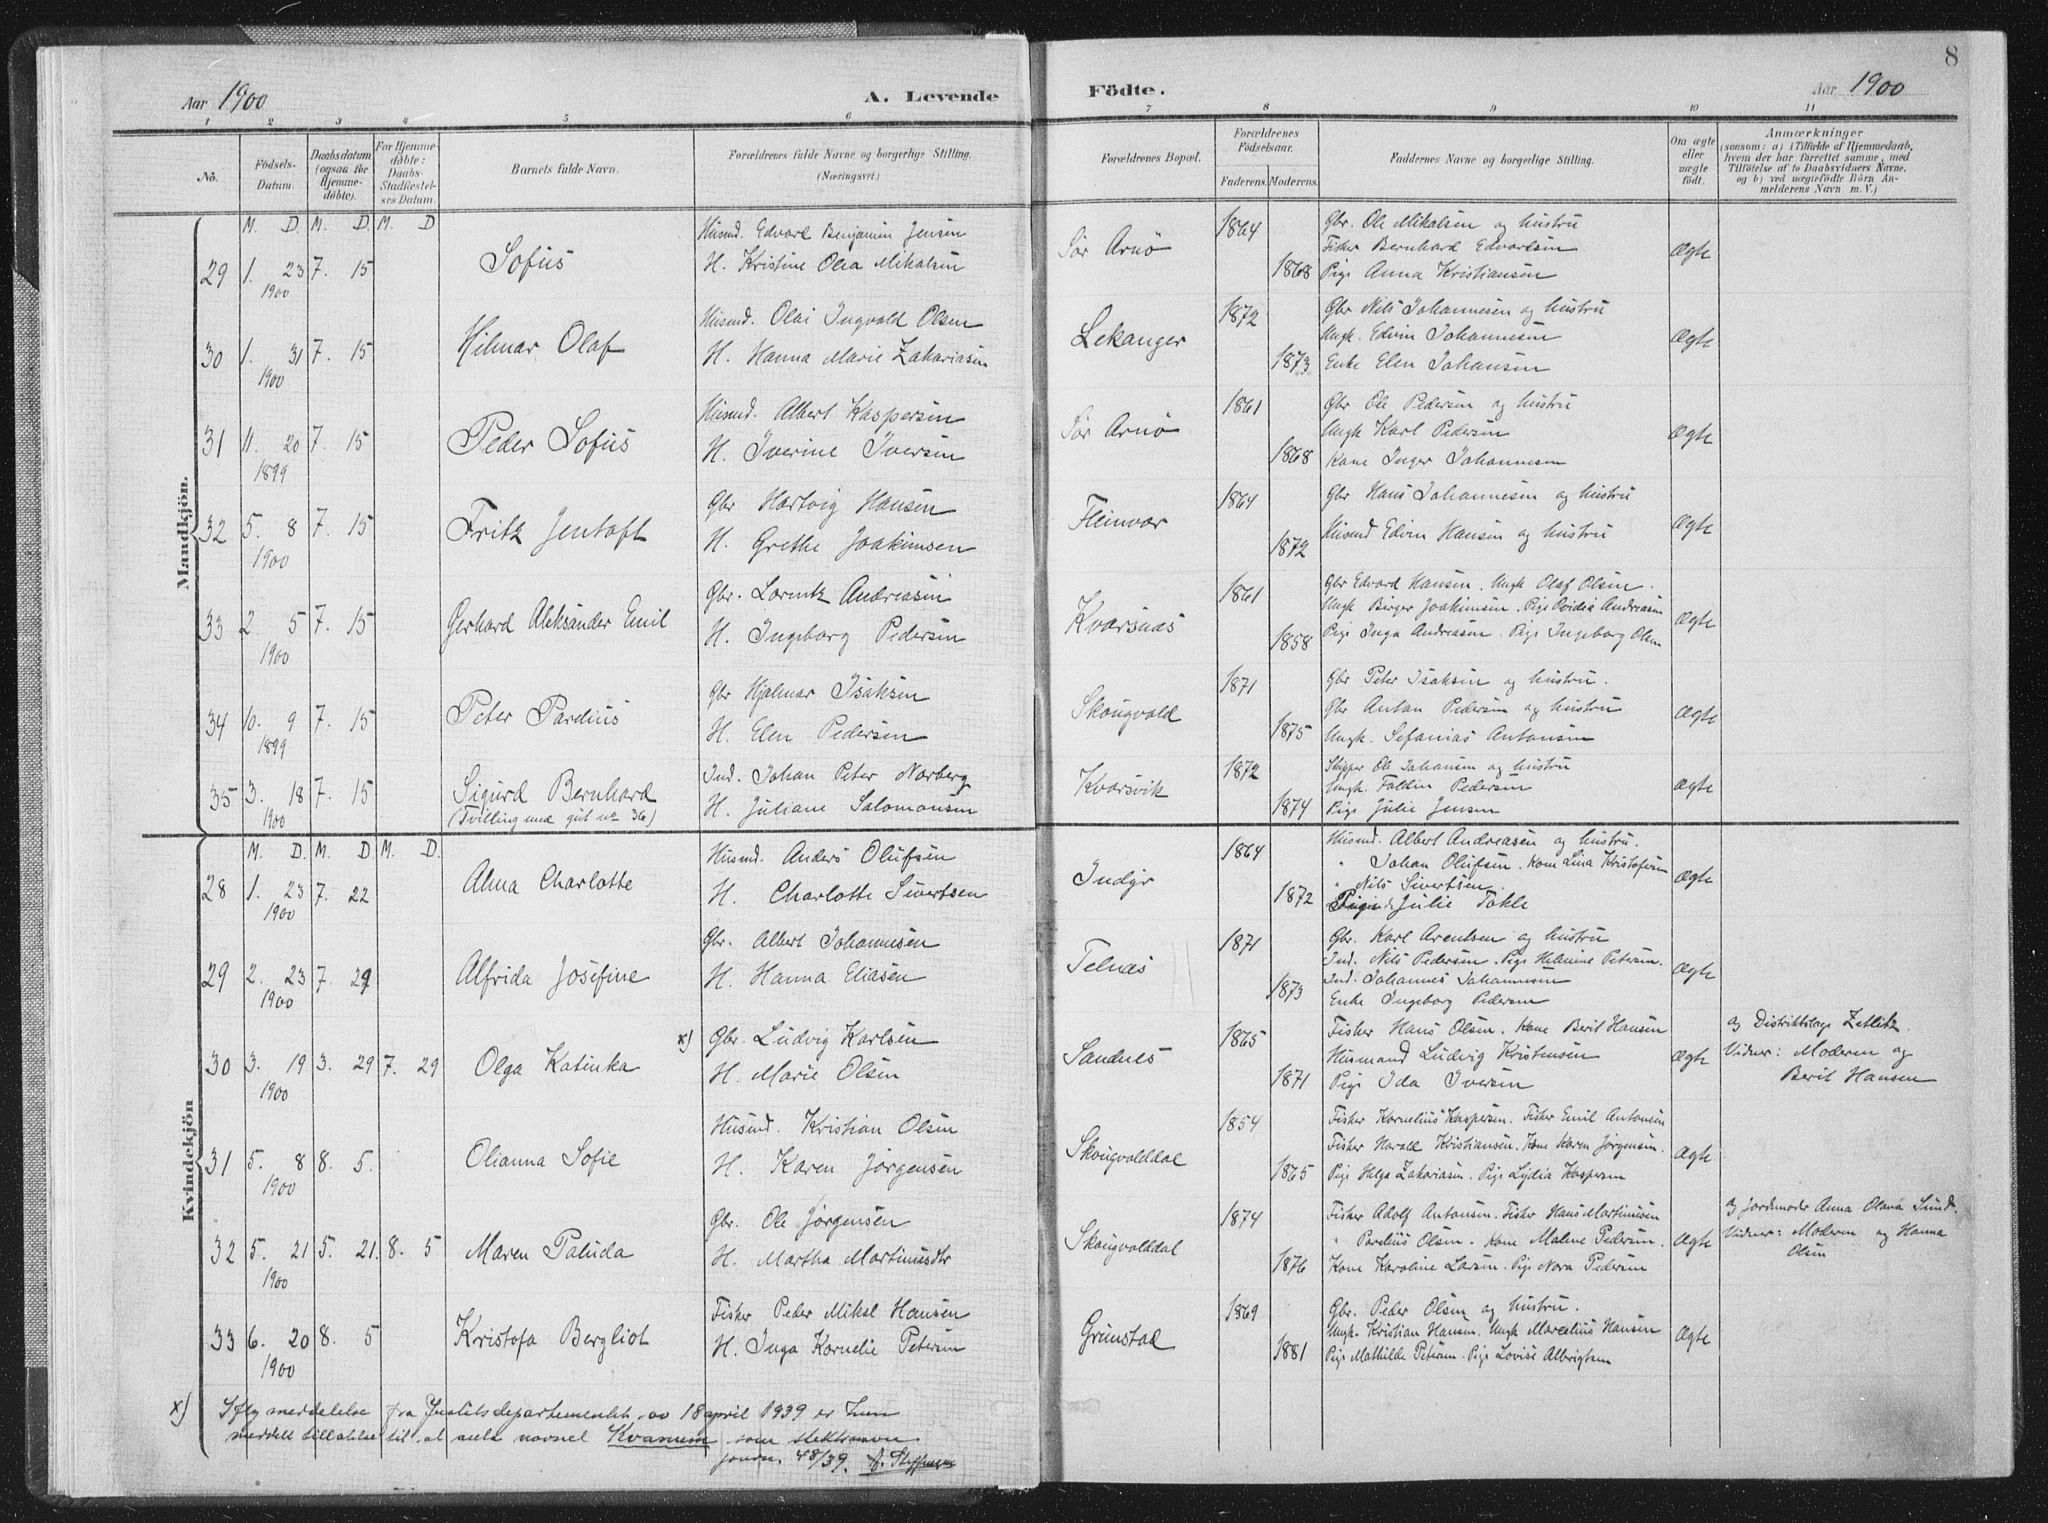 8
Aar 1900 A. Levende Födte. Aar 1900
1 2 3 4 5 6 7 8 9 10 11
No. Födsels-Datum. Daabsdatum (ogsaa for Hjemme-döbte). For Hjemme-döbte: Daabs-Stadfæstel-ses Datum. Barnets fulde Navn. Forældrenes fulde Navne og borgerlige Stilling. (Næringsvei.) Forældrenes Bopæl. Forældrenes Födselsaar. Faderens. Moderens. Faddernes Navne og borgerlige Stilling. Om ægte eller uægte födt. Anmærkninger (saasom: a) i Tilfælde af Hjemmedaab, hvem der har forrettet samme, med Tilföielse af to Daabsvidners Navne. og b) ved uægtefödte Börn An-melderens Navn m. V.)
Mandkjön.
M. D. M. D. M. D
29 1. 23 1900 7. 15 Sofus
Husmd. Edvard Benjamin Jensen
H. Kristine Olea Mikalsen
Sør Arnø 1864 1868
Gbr. Ole Mikalsen og hustru
Fisker Bernhard Edvardsen
Pige Anna Kristiansen
Ægte
30 1. 31 1900 7. 15 Hilmar Olaf
Husmd. Olai Ingvald Olsen
H. Hanna Marie Zakariasen
Lekanger 1872 1873
Gbr Nils Johannesen og hustru
Ungk. Edvin Johannesen
Enke Elen Johansen
Ægte
31 11. 20 1899 7. 15 Peder Sofus
Husmd. Albert Kaspersen
H. Iverine Iversen
Sør Arnø 1861 1868
Gbr Ole Pedersen og hustru
Ungk Karl Pedersen
Kone Inger Johannesen
Ægte
32 5. 8 1900 7. 15 Fritz Jentoft
Gbr Hartvig Hansen
H. Grethe Joakimsen
Fleinvær 1864 1872
Gbr Hans Johannesen og hustru
Husmd Edvin Hansen og hustru
Ægte
33 2. 5 1900 7. 15 Gerhard Aleksander Emil
Gbr. Lorentz Andreasen
H. Ingeborg Pedersen
Kvarsnæs 1861 1858
Gbr Edvard Hansen. Ungk Olaf Olsen.
Ungk Birger Joakimsen. Pige Ovidia Andreasen
Pige Inga Andreasen. Pige Ingeborg Olsen
Ægte
34 10. 9 1899 7. 15 Peter Pardius
Gbr Hjalmar Isaksen
H. Elen Pedersen
Skougvold 1871 1875
Gbr Peter Isaksen og hustru.
Gbr Anton Pedersen og hustru
Ungk. Sefanias Antonsen
Ægte
35 3. 18 1900 7. 15 Sigurd Bernhard
(Tvilling med gut no 36)
Ind. Johan Peter Norberg
H. Juliane Salomonsen
Kvarsvik 1872 1874
Skipper Ole Johansen og hustru
Ungk. Foldin Pedersen
Pige Julie Jensen
Ægte
Kvindekjön
M. D. M. D M. D.
28 1. 23 1900 7. 22 Alma Charlotte
Husmd. Anders Olufsen
H. Charlotte Sivertsen
Indyr 1864 1872
Husmd. Albert Andreasen og hustru.
" Johan Olufsen. Kone Lina Kristofersen
" Nils Sivertsen.
Pige Julie Tokle
Ægte
29 2. 23 1900 7. 29 Alfrida Josefine
Gbr. Albert Johannesen
H. Hanna Eliasen
Telnæs 1871 1873
Gbr. Karl Arentsen og hustru
Ind. Nils Pedersen. Pige Helmine Petersen.
Ind. Johannes Johannesen
Enke Ingeborg Pedersen
Ægte
30 3. 19 1900 3. 29 7. 29 Olga Katinka
x) Gbr. Ludvig Karlsen
H. Marie Olsen
Sandnes 1865 1871
Fisker Hans Olsen. Kone Beril Hansen
Husmand Ludvig Kristensen
Pige Ida Iversen
Ægte
a) Distriktslæge Zetlitz.
Vidner: Moderen og
Beril Hansen
31 5. 8 1900 8. 5. Olianna Sofie
Husmd. Kristian Olsen
H. Karen Jørgensen
Skougvolddal 1854 1865
Fisker Kornelius Kaspersen. Fisker Emil Antonsen
Fisker Harald Kristiansen. Kone Karen Jørgensen.
Pige Helga Zakariasen. Pige Lydia Kaspersen
Ægte
32 5. 21 1900 5. 21. 8. 5 Maren Paluda
Gbr. Ole Jørgensen
H. Martha Martinusdtr
Skougvolddal 1874 1876
Fisker Adolf Antonsen. Fisker Hans Martinusen
" Parelius Olsen. Kone Malene Pedersen.
Kone Karoline Larsen. Pige Nora Pedersen
Ægte
a) Jordmoder Anna Olava Sund.
Vidner: Moderen og Hanna
Olsen
33 6. 20 1900 8. 5 Kristofa Bergliot
Fisker Peder Mikal Hansen
H. Inga Kornelie Petersen
Grimstad 1869 1881
Gbr. Peder Olsen og hustru.
Ungk. Kristian Hansen. Ungk Marcelius Hansen
Pige Mathilde Petersen. Pige Lovise Albrigtsen
Ægte
x) Iflg meddelelse fra Justitsdepartementet av 18 april 1939 er hun
meddelt tillatelse til at anta navnet Kvamme som slektsnavn
journ. 48/39. A. Steffensen